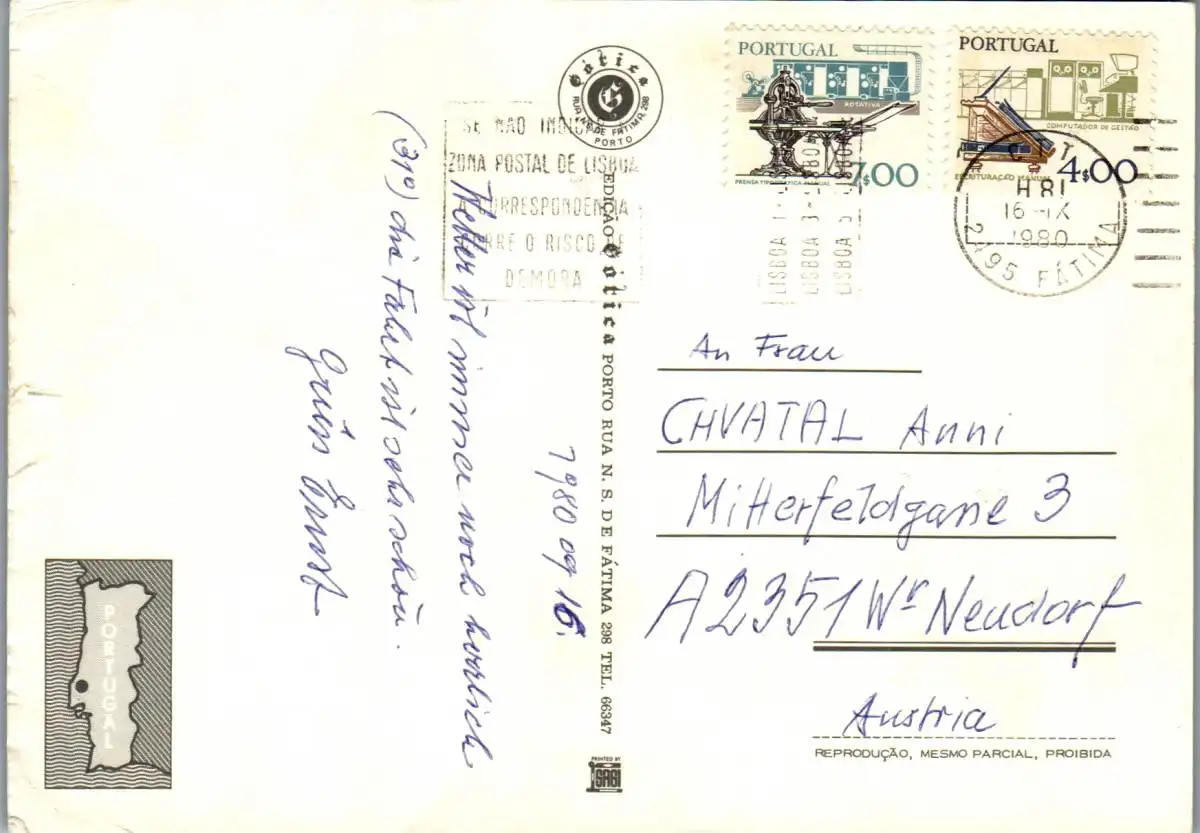 PORTUGAL
ROTATIVA
PRENSA TIPOGRÁFICA MANUAL
7$00
PORTUGAL
COMPUTADOR DE GESTÃO
ESCRITURAÇÃO MANUAL
4$00
C T T
H 81
16-IX
1980
2495 FÁTIMA
Gótica
G
RUA N. S. DE FÁTIMA, 298
PORTO
SE NÃO INDICA
ZONA POSTAL DE LISBOA
A CORRESPONDÊNCIA
CORRE O RISCO DE
DEMORA
LISBOA 1
LISBOA 3
LISBOA 5
1980 09 16.
Wetter ist immer noch herrlich
(31°) die Fahrt ist sehr schön.
Grüss Ernst
EDIÇÃO Gótica PORTO RUA N. S. DE FÁTIMA 298 TEL. 66347
An Frau
CHVATAL Anni
Mitterfeldgasse 3
A2351 Wr Neudorf
Austria
REPRODUÇÃO, MESMO PARCIAL, PROIBIDA
PORTUGAL
PRINTED BY
SAGI